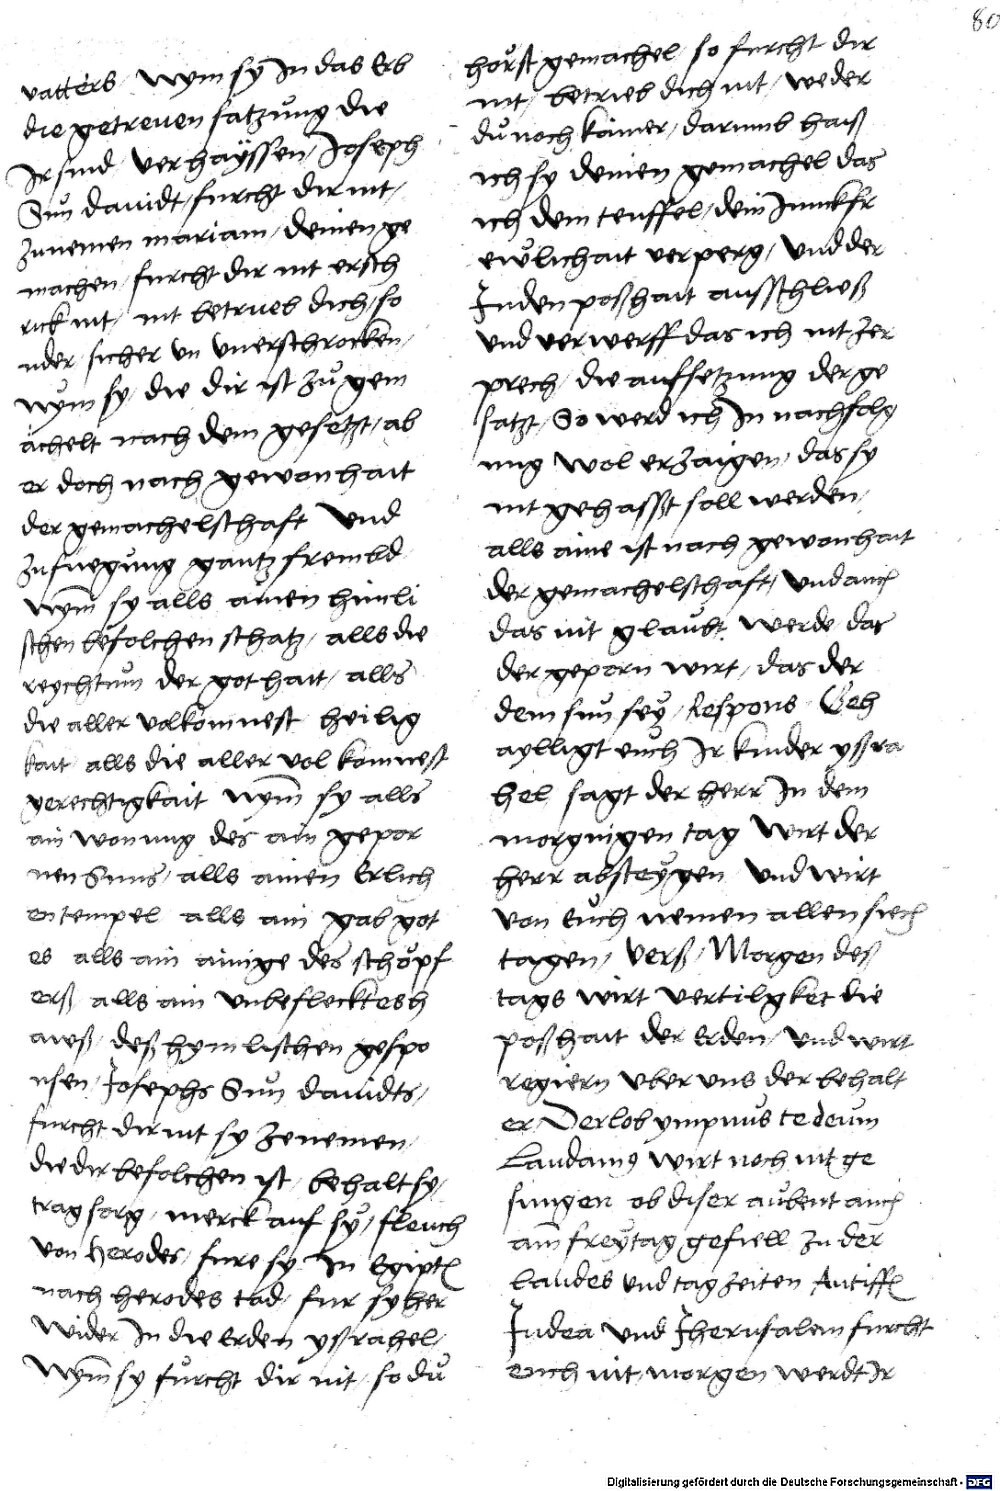 80
vatters / Nym sy In das Erb
die getreuen satzung die
Ir sind / verhayssen / Joseph
Sun dauidt / furcht dir nit /
zunemen mariam / deinen ge
machen / furcht dir nit ersch
rick nit / nit betrueb dich / so
nder / sicher vn vnerschrocken /
nym sy / die dir ist zu gem
achelt nach dem gesetzt / ab
er doch nach gewonhait
der gemachelschaft Vnd
zufuegung gantz frembd
Nym sy alls ainen himli
schen befolchen schatz / alls die
reychtum der gothait / alls
die aller volkomnest heilig
kait alls die aller vol komnest
gerechtigkait Nym sy alls
ain wonung des ain gepor
nen Suns / alls ainen Erlich
en tempel alls ain gab got
es alls ain ainige des schöpf
erß alls ain vnbeflecktesh
awß / deß hymlischen gespo
nsen / Josephs Sun dauidts /
furcht dir nit sy zenemen /
die dir befolchen ist / behalt sy /
trag sorg / merck auf sy / fleuch
von Herodes / fure sy In Egipt
nach herodes tod / fur sy her
wider In die Erden yßrahel /
Nym sy furcht dir nit / so du
hörst gemachel / so furcht dir
nit / betrieb dich nit / weder
du noch kainer / darumb haiß
ich sy deinen gemachel das
ich dem teuffel / dein Junckfr
ewlichait verperg / Vnd der
Juden poßhait aufschließ
Vnd verwerff das ich nit zer
prech / die auffsetzung der ge
satzt / So werd ich In nachfolg
ung wol erzaigen / das sy
nit gehasst soll werden /
alls aine ist nach gewonhait
der gemachelschaft / Vnd auch
das nit glaubt werde das
der geporn wirt / das der
dem sun sey / Respons Geh
aylligt euch Ir kinder yßra
hel sagt der herr In dem
morgnigen tag Wirt der
herr absteygen Vnd wirt
von Euch nemen allen siech
tagen / Verß / Morgen deß
tags wirt vertilgket die
poßhait der Erden / Vnd wirt
regiern vber vns der behalt
er Der lob ympnus te deum
Laudamus wirt noch nit ge
sungen ob diser aubent auch
am freytag gefiell zu der
laudes vnd tag zeiten Antiff
Judea vnd Jherusalem furcht
euch nit / morgen werdt Ir
Digitalisierung gefördert durch die Deutsche Forschungsgemeinschaft - DFG